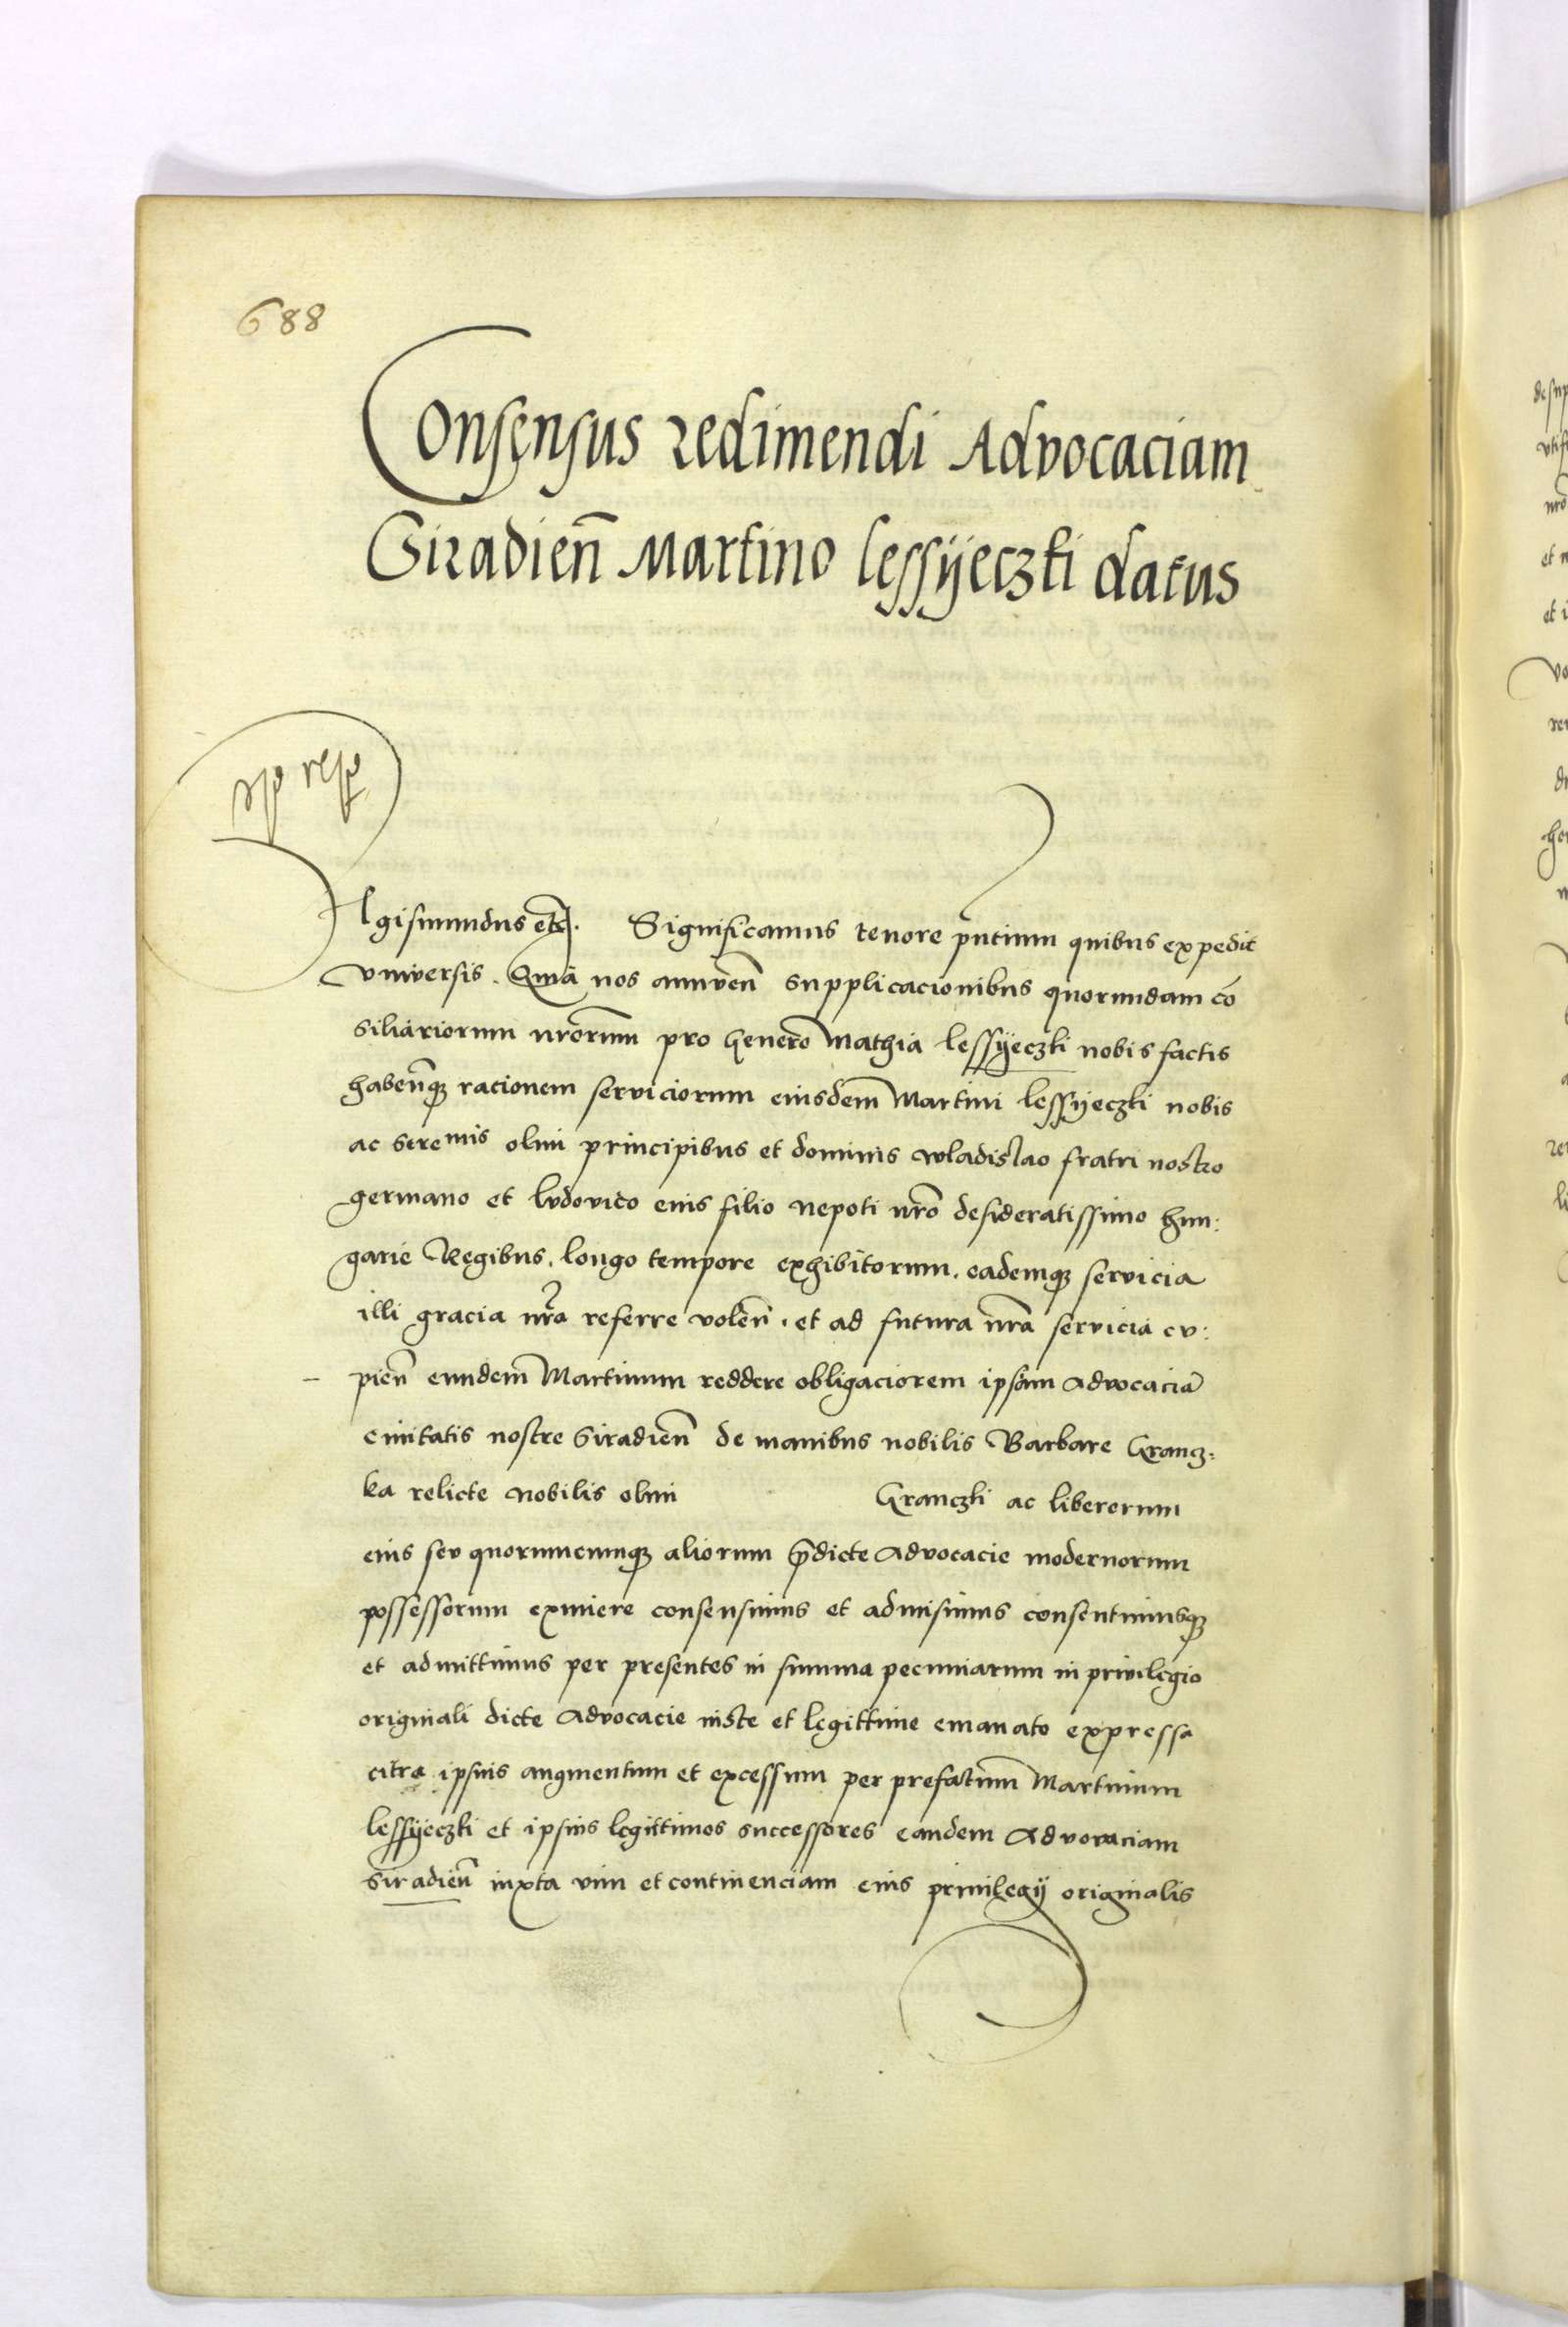 688
Consensus redimendi Advocaciam
Siradien̄ Martino lessÿeczki datus
Sigismundus etc. Significamus tenore pn̄tium quibus expedit
vniversis. Quia nos annuen̄ supplicacionibus quorundam cō
siliariorum nr̄orum pro genero Mathia lessÿeczki nobis factis
haben̄q; racionem serviciorum eiusdem̄ Martini lessÿeczki nobis
ac serenis olim principibus et dominis wladislao fratri nostro
germano et lvdovico eius filio nepoti nr̄o desideratissimo hun:
garie Regibus. longo tempore exhibitorum. eademq; servicia
illi gracia nr̄a referre volen̄. et ad futura nr̄a servicia cv:
pien̄ eundem̄ Martinum reddere obligaciorem ipsam Advocaciā
civitatis nostre Siradien̄ de manibus nobilis Barbare Grancz:
ka relicte nobilis olim Granczki ac liberorum
eius sev quorumcumq; aliorum p̄dicte Advocacie modernorum
possessorum eximere consensimus et admisimus consentimusq;
et admittimus per presentes in summa pecuniarum in privilegio
originali dicte Advocacie iuste et legittime emanato expressa
citra ipsius augmentum et excessum per prefatum̄ Martinum
lessÿeczki et ipsius legittimos successores eandem Advocaciam
siradien̄ iuxta vim et continenciam eius privilegij originalis